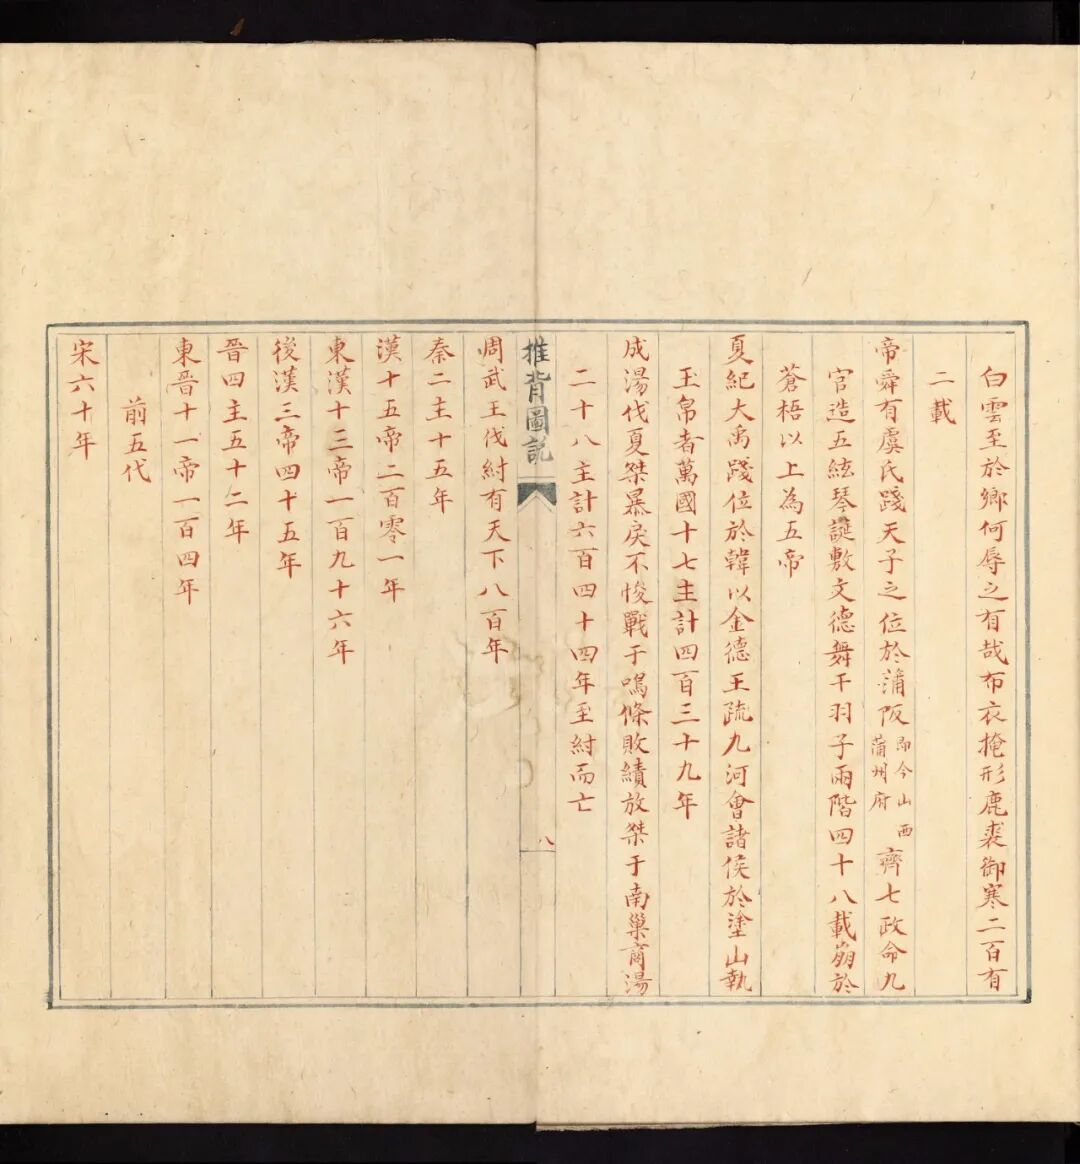 白雲至於鄉何辱之有哉布衣掩形鹿裘御寒二百有
二載
帝舜有虞氏踐天子之位於蒲阪即今山西蒲州府齊七政命九
官造五絃琴誕敷文德舞干羽子兩階四十八載崩於
蒼梧以上為五帝
夏紀大禹踐位於韓以金德王疏九河會諸侯於塗山執
玉帛者萬國十七主計四百三十九年
成湯伐夏桀暴戾不悛戰于鳴條敗績放桀于南巢商湯
二十八主計六百四十四年至紂而亡
推背圖説
八
周武王伐紂有天下八百年
秦二主十五年
漢十五帝二百零一年
東漢十三帝一百九十六年
後漢三帝四十五年
晉四主五十二年
東晉十一帝一百四年
前五代
宋六十年